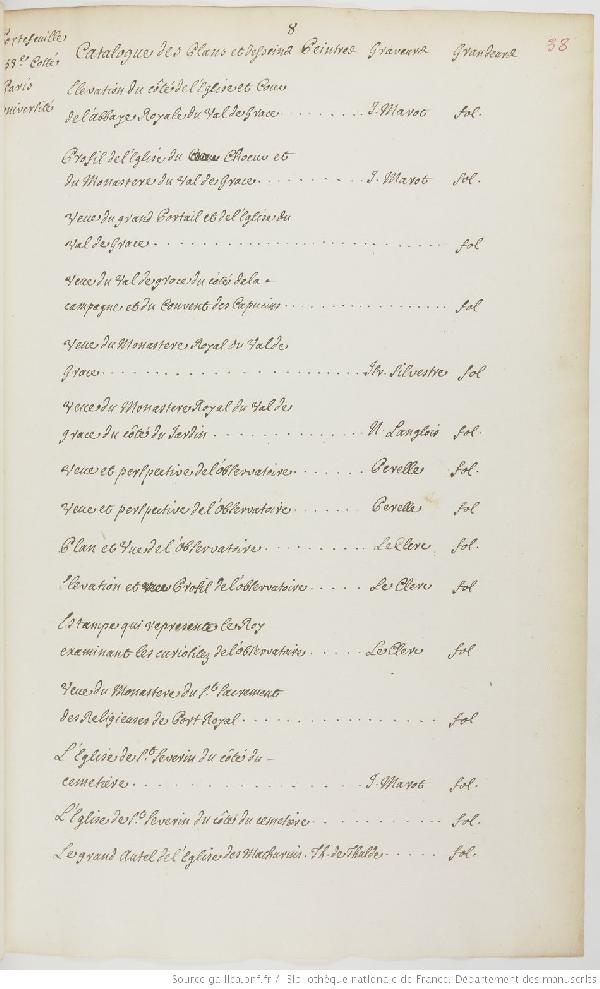 8
38
Portefeuille
38.e Cotté
Paris
université
Catalogue des Plans et desseins Peintres Graveurs Grandeurs
Elevation du côté de l'Eglise et Cour
de l'abbaye Royale du Val de Grace . . . . . . . J. Marot fol.
Profil de l'Eglise du Choeur et
du Monastere du Val de Grace . . . . . . . . J. Marot fol.
Veue du grand Portail et de l'Eglise du
Val de Grace . . . . . . . . . . . . . . . . . . . . . . . . . fol
Veue du Val de grace du coté de la -
campagne et du Couvent des Capucins . . . . . . . . . . . . . . fol
Veue du Monastere Royal du Val de
Grace . . . . . . . . . . . . . . . . . . . . . . . Isr. Silvestre fol
Veue du Monastere Royal du Val de
grace du côté du Jardin . . . . . . . . . . . . N. Langlois fol.
Veue et perspective de l'observatoire . . . . . . Perelle fol.
Veue et perspective de l'observatoire . . . . . . Perelle fol
Plan et Vue de l'Observatoire . . . . . . . . . Le Clerc fol.
Elevation et Profil de l'observatoire . . . . . Le Clerc fol
Estampe qui represente le Roy
examinant les curiositez de l'observatoire . . . . . Le Clerc fol
Veue du Monastere du S.t Sacrement
des Religieuses de Port Royal . . . . . . . . . . . . . . . . . fol
L'Eglise de S.t Severin du côté du -
cemetiere . . . . . . . . . . . . . . . . . . . . J. Marot fol.
L'Eglise de S.t Severin du côté du cemetiere . . . . . . . . . . . . fol.
Le grand Autel de l'Eglise des Mathurins . Th. de Thalde . . . . . . fol.
Source gallica.bnf.fr / Bibliothèque nationale de France. Département des manuscrits